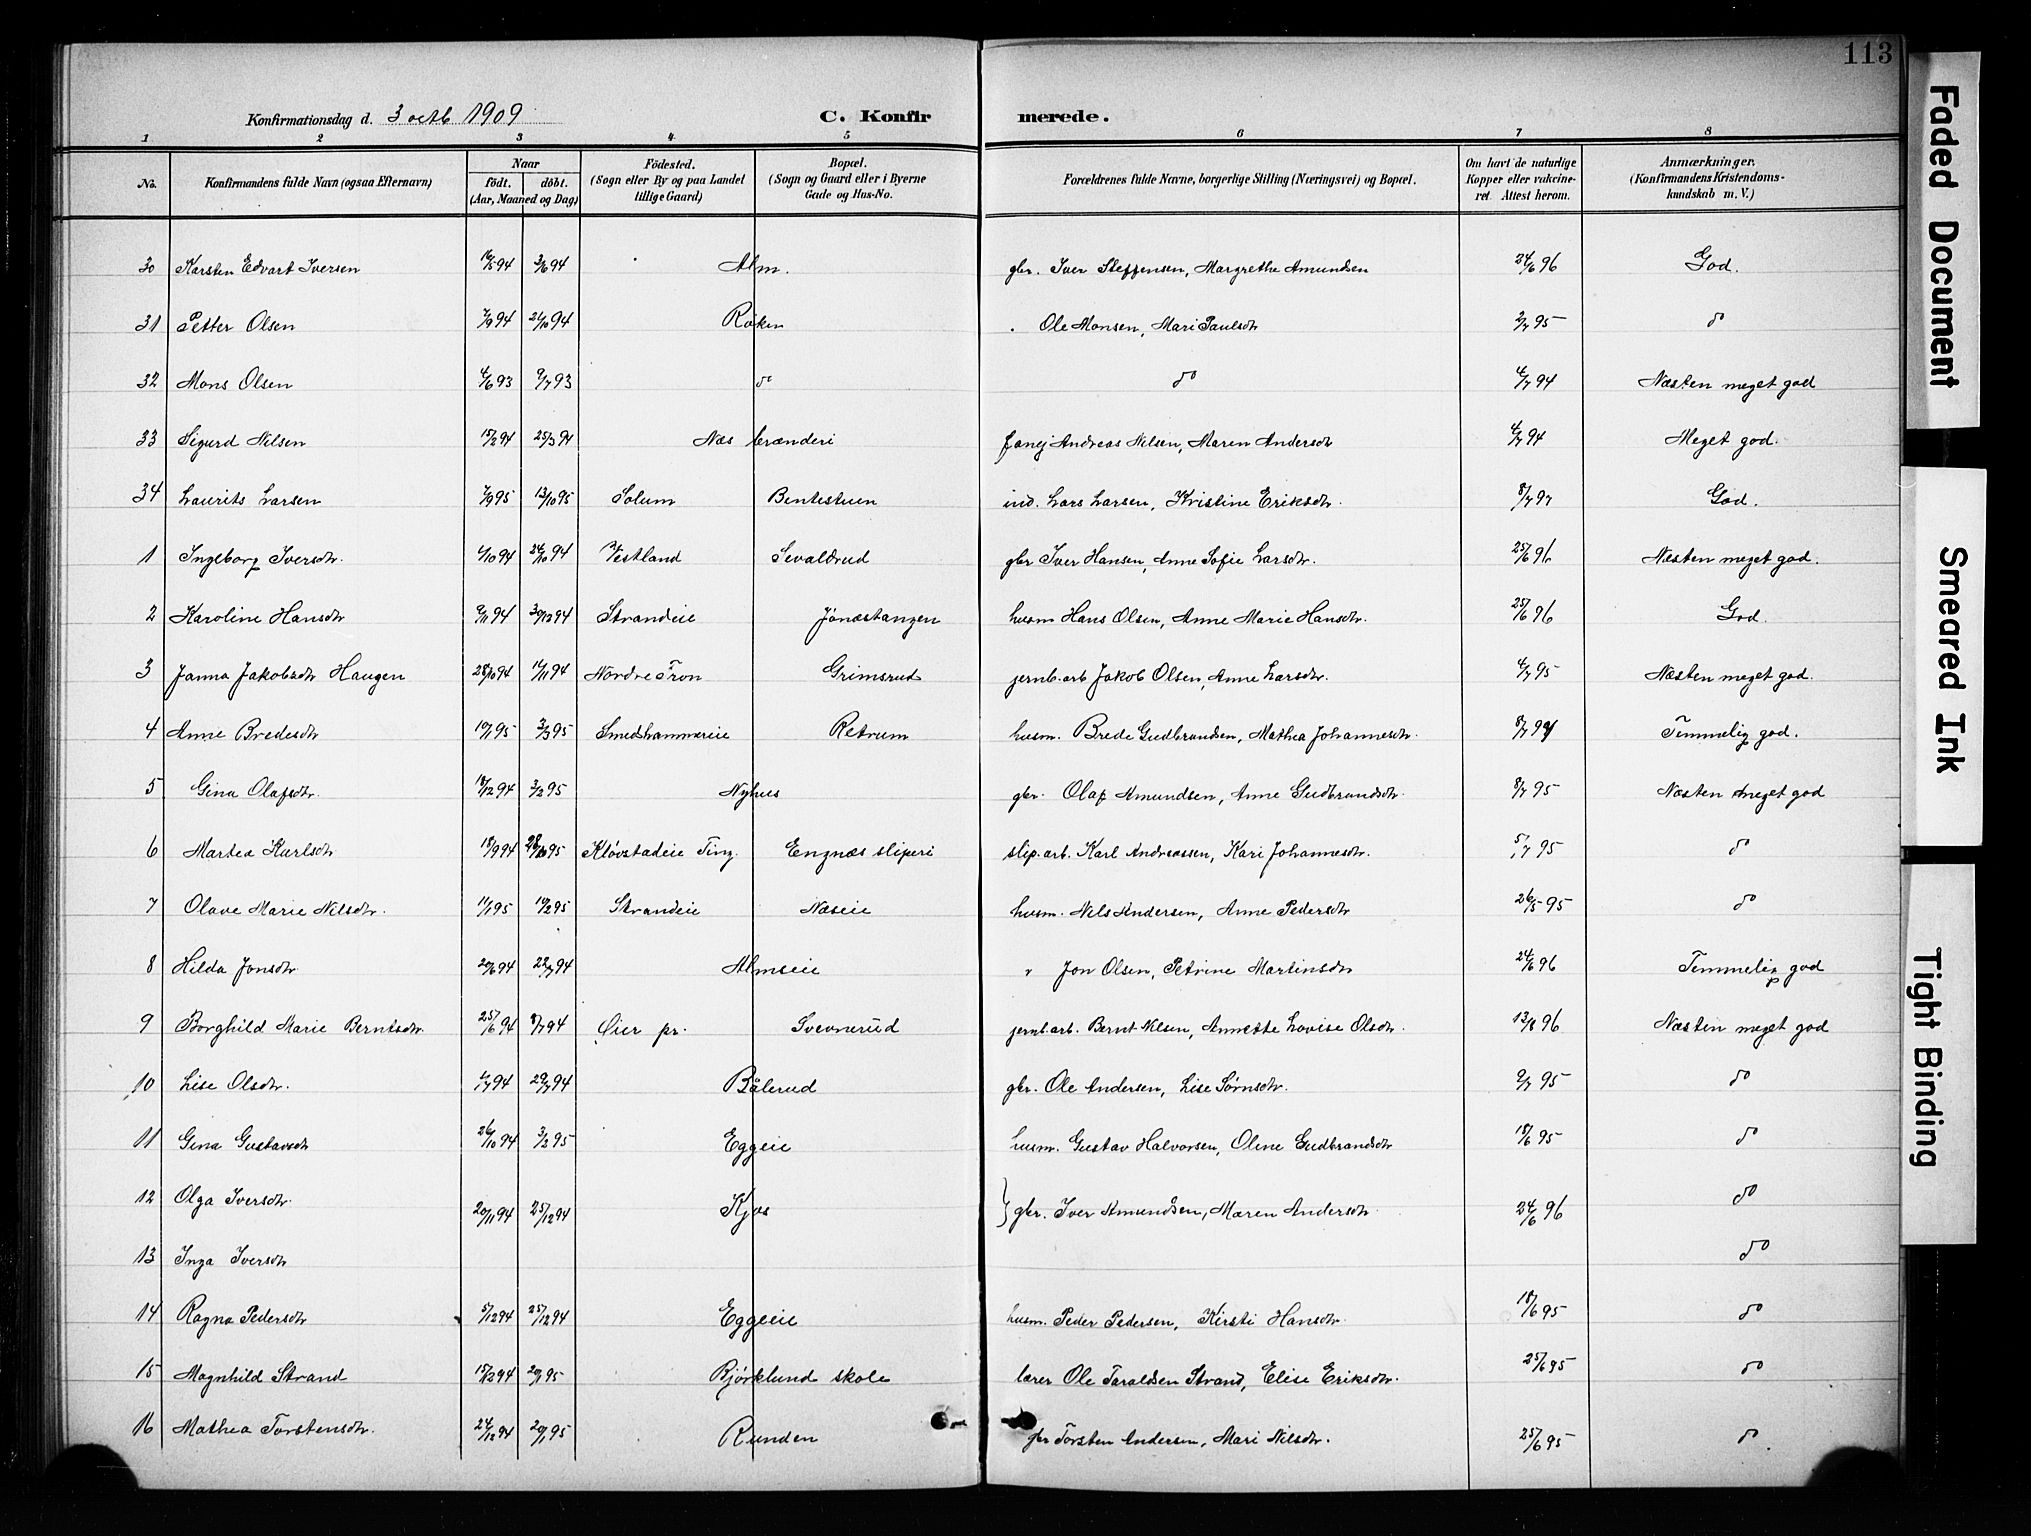 113
Konfirmationsdag d. 3 octb 1909
C. Konfirmerede.
1 2 3 4 5 6 7 8
No. Konfirmandens fulde Navn (ogsaa Efternavn) Naar født. døbt. (Aar, Maaned og Dag) Födested. (Sogn eller By og paa Landet tillige Gaard) Bopæl. (Sogn og Gaard eller i Byerne Gade og Hus-No. Forældrenes fulde Navne, borgerlige Stilling (Næringsvei) og Bopæl. Om havt de naturlige Kopper eller vakcineret. Attest herom. Anmærkninger. (Konfirmandens Kristendomskundskab m. V.)
30 Karsten Edvart Iversen 16/5 94 3/6 94 Alm. gbr. Iver Steffensen, Margrethe Amundsen 24/6 96 God.
31 Petter Olsen 7/9 94 21/10 94 Røken Ole Monsen, Mari Paulsdtr 2/7 95 do
32 Mons Olsen 4/6 93 9/7 93 do do 4/7 94 Næsten meget god
33 Sigurd Nilsen 15/2 94 25/3 94 Næs brænderi Andreas Nilsen, Maren Andersdtr 4/7 94 Meget god.
34 Laurits Larsen 7/9 95 13/10 95 Solum Bentestuen ind. Lars Larsen, Kristine Eriksdtr. 8/7 97 God.
1 Ingeborg Iversdtr. 4/10 94 24/10 94 Vestland Sevaldrud gbr Iver Hansen, Anne Sofie Larsdtr. 25/6 96 Næsten meget god.
2 Karoline Hansdtr 9/11 94 30/12 94 Strandeie Jónæstangen husm Hans Olsen, Anne Marie Hansdtr. 25/6 96 God.
3 Janna Jakobsdtr Haugen 28/10 94 11/11 94 Nordre Fron Grimsrud jernb.arb Jakob Olsen, Anne Larsdtr. 4/7 95 Næsten meget god.
4 Anne Bredesdtr 10/1 95 3/3 95 Smedshammereie Retrum husm. Brede Gudbrandsen, Mathea Johannesdtr. 8/7 99 Temmelig god.
5 Gina Olafsdtr. 18/12 94 3/2 95 Nyhus gbr. Olaf Amundsen, Anne Gudbrandsdtr. 8/7 95 Næsten meget god
6 Martea Karlsdtr 18/9 94 28/10 95 Kløvstadeie Ting. Engnæs sliperi slip.arb. Karl Andreassen, Kari Johannesdtr. 5/7 95 do
7 Olave Marie Nilsdtr. 11/1 95 10/2 95 Strandeie Næseie husm. Nils Andersen, Anne Pedersdtr 26/5 95 do
8 Hilda Jonsdtr 20/6 94 22/7 94 Almseie " Jon Olsen, Petrine Martinsdtr 24/6 96 Temmelig god
9 Borghild Marie Berntsdtr. 25/6 94 8/7 94 Øier pr. Svevnerud jernb.arb. Bernt Nilsen, Annette Lovise Olsdtr. 13/8 96 Næsten meget god
10 Lise Olsdtr. 4/7 94 29/7 94 Bålerud gbr. Ole Andersen, Lise Sørnsdtr. 9/7 95 do
11 Gina Gustavsdtr 26/10 94 3/2 95 Eggeie husm. Gustav Halvorsen, Oline Gudbrandsdtr 18/6 95 do
12 Olga Iversdtr. 20/11 94 25/12 94 Kjos gbr. Iver Amundsen, Maren Andersdtr 24/6 96 do
13 Inga Iversdtr do
14 Ragna Pedersdtr 5/12 94 25/12 94 Eggeeie husm. Peder Pedersen, Kirsti Hansdtr. 18/6 95 do
15 Magnhild Strand 15/12 94 20/1 95 Bjørklund skole lærer Ole Taraldsen Strand, Elise Eriksdtr. 25/6 95 do
16 Mathea Torstensdtr. 24/12 94 20/1 95 Runden gbr Torsten Andersen, Mari Nilsdtr. 25/6 95 do
Faded Document
Smeared Ink
Tight Binding